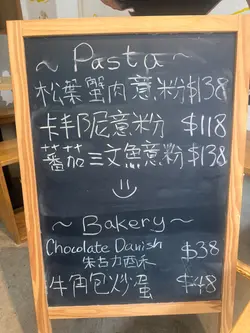 ~ Pasta ~
松葉蟹肉意粉$138
卡邦尼意粉 $118
蕃茄三文魚意粉$138
~ Bakery ~
Chocolate Danish $38
朱古力酥
牛角包炒蛋 $48